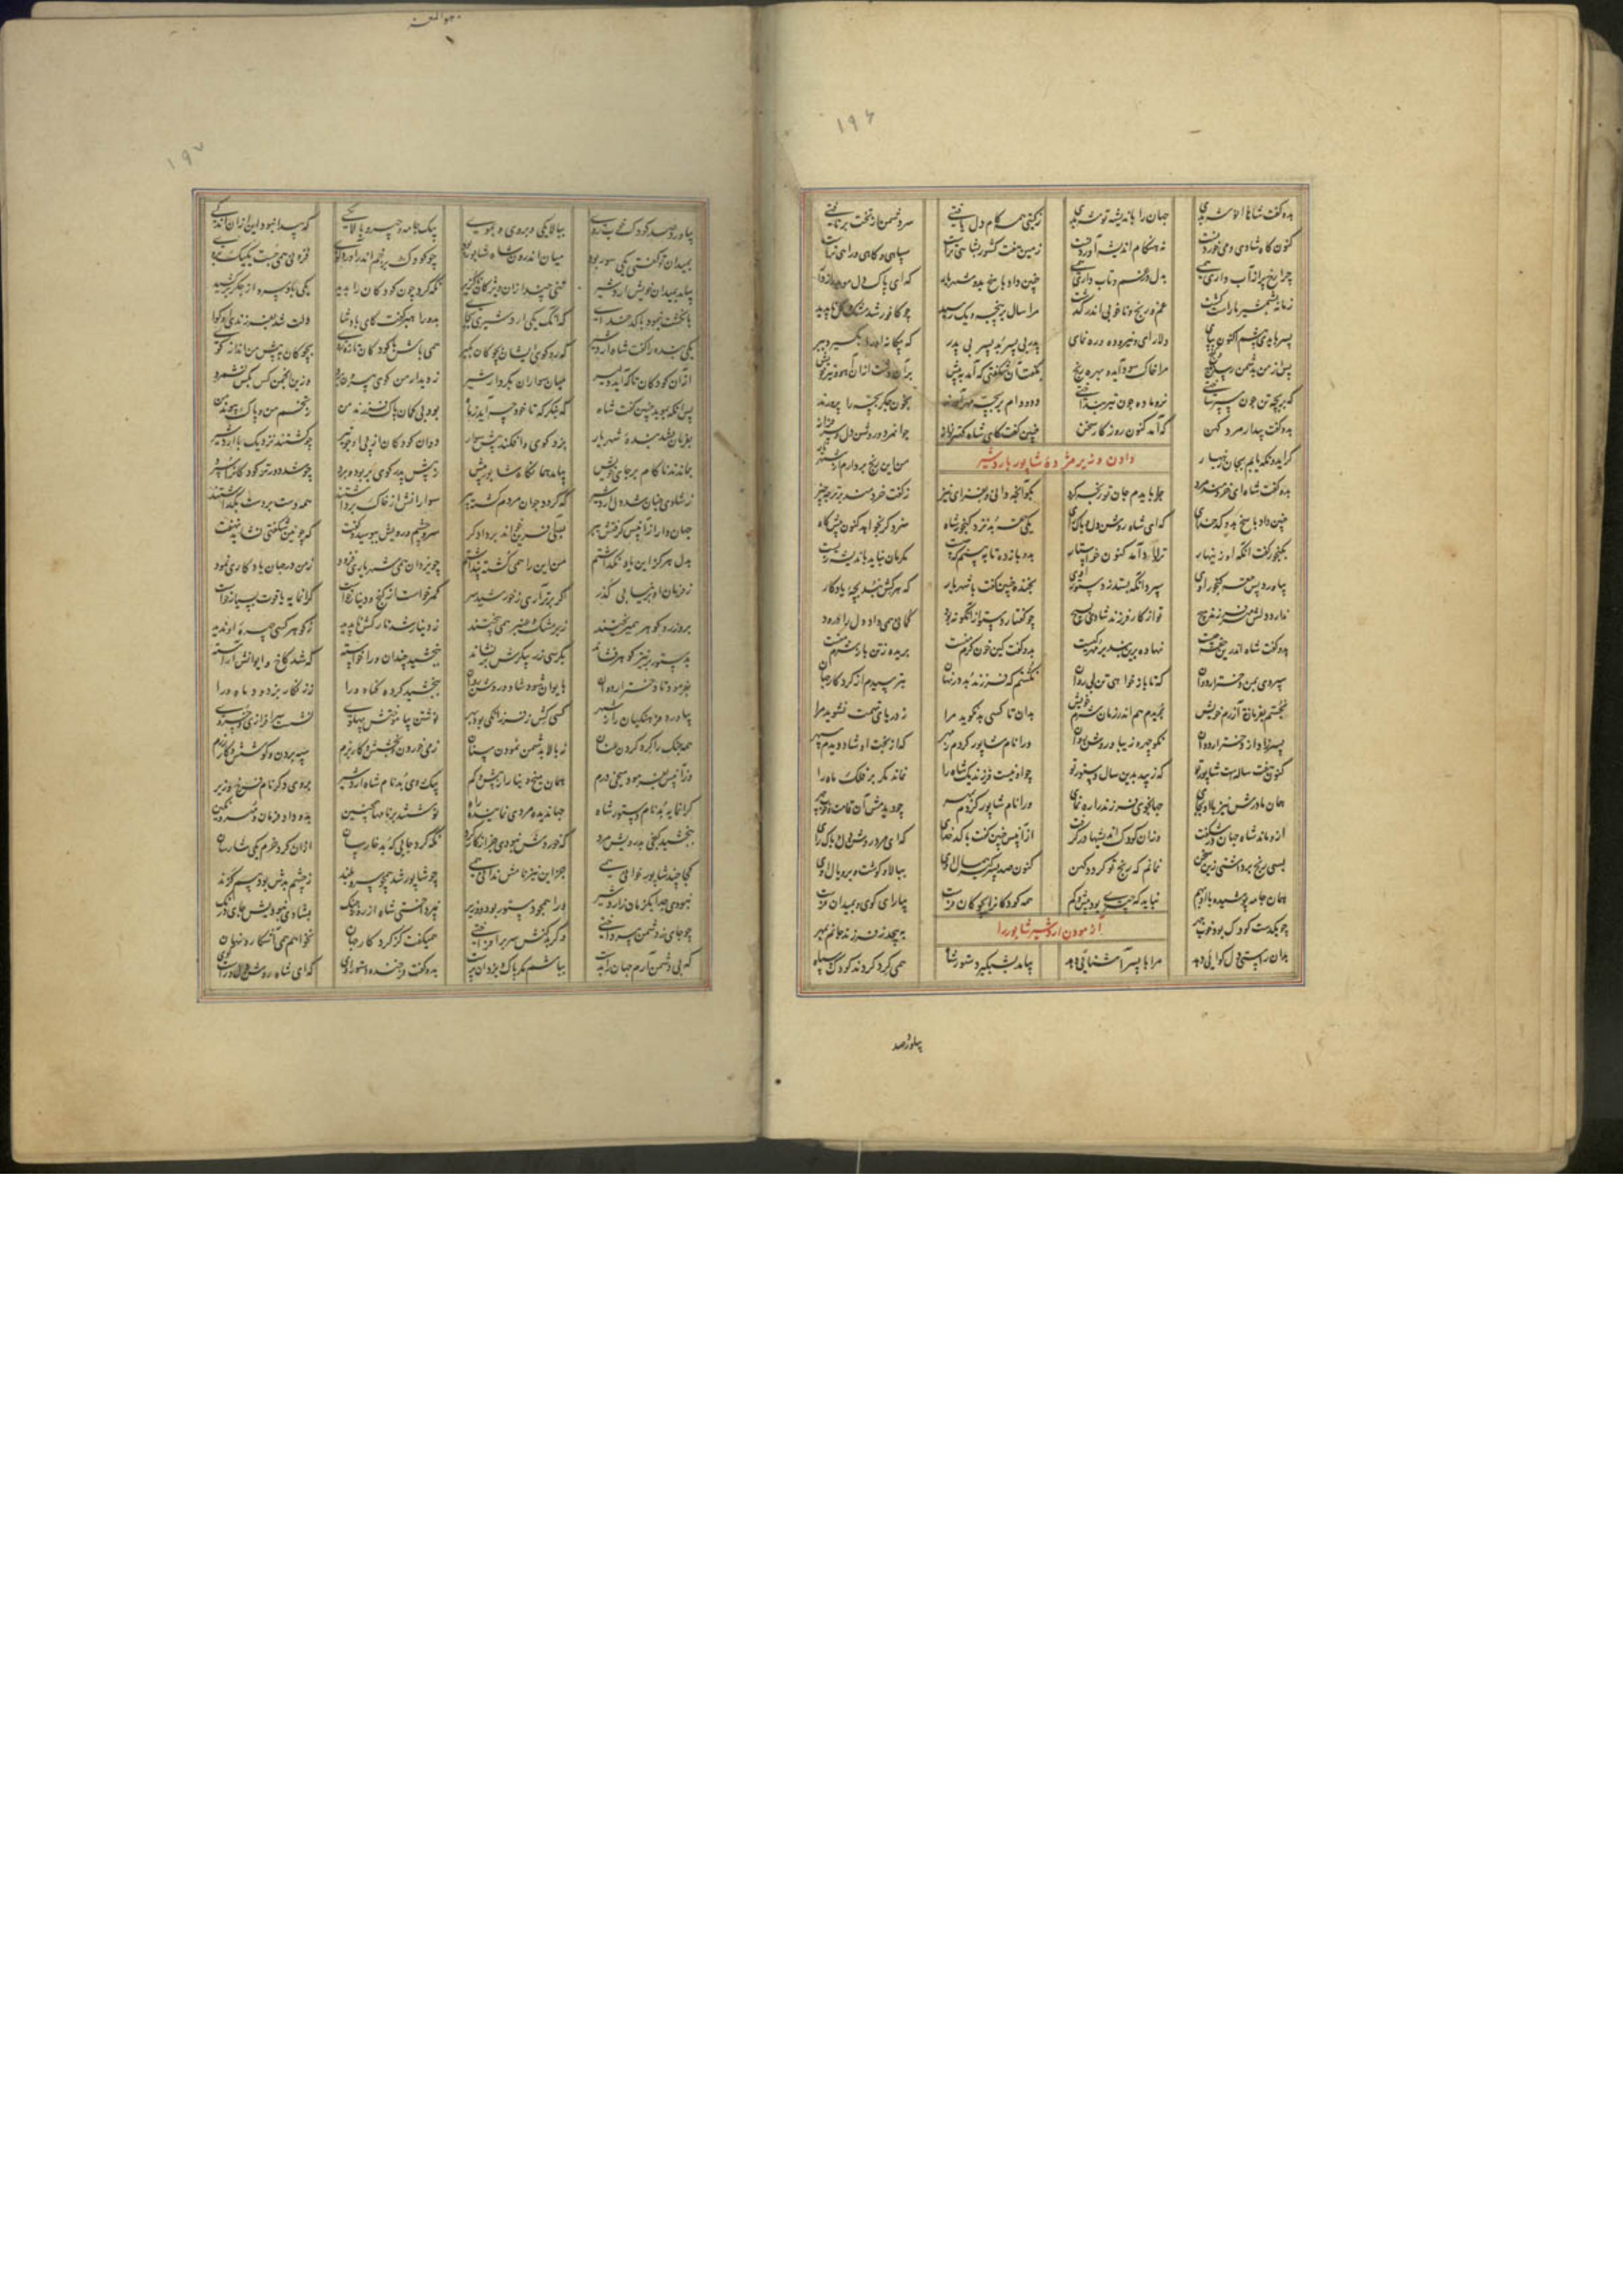 ۱۹۶
بدو گفت شاها انوشه بدی جهان را باندیشه توشه بدی ز گیتی همه کام دل یافتی سر دشمن از تخت برتافتی
کنون گاه شادی و می خوردنست نه هنگام اندیشه آوردنست زمین هفت کشور بشاهی تراست سپاهی و گاهی و راهی تراست
چرا رخ پر از آب داری همی بدل در غم و تاب داری همی چنین داد پاسخ بدو شهریار که ای پاک دل موبد رازدار
زمانه بشمشیر ما راست گشت غم و رنج و ناخوبی اندر گذشت مرا سال بر پنجه و یک رسید چو کافور شد مشک و گل ناپدید
پسر بایدی پیشم اکنون بپای دلارای و نیروده و رهنمای پدر بی پسر بد پسر بی پدر که بیگانه او را نگیرد ببر
پس از من بدشمن رسد تاج و گنج مرا خاک سود آید و بهره رنج بگفت آن شگفتی که آمد بپیش بر آن دشت ازان آهوی
که بر بچه تن چون سپر ساختی نر و ماده چون تیر می تاختی دد و دام بر بچه مهر آورند بخون جگر بچه را پرورند
بدو گفت بیدار مرد کهن که آمد کنون روزگار سخن چنین گفت کای شاه کهتر نواز جوانمرد و روشن دل و سرفراز
دادن وزیر مژده شاپور باردشیر
گر ایدونکه یابم بجان زینهار من این رنج بردارم از شهریار
بدو گفت شاه ای خردمند مرد چرا بایدم جان تو رنجه کرد بگو آنچه دانی و بفزای نیز ز گفت خردمند برتر چه چیز
چنین داد پاسخ بدو کدخدای که ای شاه روشن دل و پاک رای یکی حقه بد نزد گنجور شاه سزد گر بخواهد کنون پیشگاه
بگنجور گفت آنکه او زینهار ترا داد آمد کنون خواستار بدو بازده تا ببینم که چیست مگرمان نباید باندیشه زیست
بیاورد پس حقه گنجور اوی سپرد آنکه بستد ز دستور اوی بخنده چنین گفت با شهریار که هر کش نبد بچه یادگار
ندارد دلش مهر فرزند هیچ تو از کار فرزند شادی بسیچ چو گفتار دستور از آنگونه بود گمانی همی داد دل را درود
بدو گفت شاه اندرین حقه چیست نهاده برین بند بر مهر کیست بدو گفت کین خون گرم منست بریده ز تن باز شرم منست
سپردی بمن دختر اردوان که تا باز خواهی تن بی روان نکشتم که فرزند بد در نهان بترسیدم از کردگار جهان
نجستم بفرمانت آزرم خویش ببریدم هم اندر زمان شرم خویش بدان تا کسی بد نگوید مرا ز دریای تهمت نشوید مرا
پسر زاد از دختر اردوان نکو چهره زیبا و روشن روان ورا نام شاپور کردم ز مهر که از بخت او شاد دیدم سپهر
کنون هفت ساله است شاپور تو که زیبد بدین سال دستور تو چو او نیست فرزند یک شاه را نماند مگر بر فلک ماه را
همان مادرش نیز با او بجای جهانجوی فرزند را رهنمای ورا نام شاپور کردم بمهر چو دیدمش آن قامت و خوب چهر
ازو ماند شاه جهان در شگفت وزان کودک اندیشها در گرفت ازآنپس چنین گفت با کدخدای که ای مرد روشن دل و پاک رای
بسی رنج برداشتی زین سخن نمانم که رنج تو گردد کهن کنون صد پسر گیر همسال اوی ببالا و گوشت و بر و یال اوی
همان جامه پوشیده با او بهم نباید که چیزی بود بیش و کم همه کودکانرا بچوگان فرست بیارای گوی و بمیدان فرست
آزمودن اردشیر شاپور را
چو یکدست کودک بود خوب چهر بپیچد ز فرزند جانم بمهر
بدان راستی دل گوایی دهد مرا با پسر آشنائی دهد بیامد بشبگیر دستور شاه همی گرد کردند کودک سپاه
بیاورد صد
۱۹۷
بیاورد صد کودک خوب روی ببالا یکی و بروی و بموی بیک جامه و چهر و بالا یکی که پیدا نبود این ازان اندکی
بمیدان تو گفتی یکی سور بود میان اندرون شاه شاپور بود چو کودک بزخم اندر آورد گوی فزونی همی جست یک یک بروی
بیامد بمیدان خویش اردشیر تنی چند ازان ویژگان ناگزیر نگه کرد چون کودکان را بدید یکی باد سرد از جگر برکشید
بانگشت بنمود با کدخدای که آنک یکی اردشیری بجای بدو راهبر گفت کای پادشا دلت شد بفرزند گوا
یکی بنده را گفت شاه اردشیر که رو گوی ایشان بچوگان بگیر همی باش با کودکان تازه روی بچوگان به پیش من انداز گوی
ازآن کودکان تا که آید دلیر میان سواران بکردار شیر ز دیدار من گوی بیرون برد وزین انجمن کس بکس نشمرد
پس آنگه بموبد چنین گفت شاه که بنگر که تا خود چه آید ز راه بود بی گمان پاک فرزند من ز تخم من و پاک پیوند من
بفرمان بشد بنده شهریار بزد گوی و افکند پیش سوار دوان کودکان از پی او چو تیر چو گشتند نزدیک با اردشیر
بماندند ناکام بر جای خویش بیامد همانگاه شاپور پیش ز پیش پدر گوی بربود و برد چو شد دور مر کودکانرا سپرد
ز شادی چنان شد دل اردشیر که گردد جوان مردم گشته پیر سوارانش از خاک برداشتند همه دست بر دست بگذاشتند
جهاندار ازآنپس گرفتش ببر بسی آفرین خواند بر دادگر سر و چشم و رویش ببوسید و گفت که چونین شگفتی نشاید نهفت
بدل هرگز این یاد نگذاشتم من این را همی کشته پنداشتم چو یزدان همی شهریاری فزود ز من در جهان یادگاری نمود
ز فرمان او بر نیابی گذر گر برتر آری ز خورشید سر گهر خواست از گنج و دینار خواست گرانمایه یاقوت بسیار خواست
برو زر و گوهر همی ریختند زبر مشک و عنبر همی بیختند ز دینار شد تارکش ناپدید ز گوهر کسی چهره او ندید
بدستور بر نیز گوهر فشاند بکرسی زر پیکرش بر نشاند ببخشید چندان ورا خواسته که شد کاخ و ایوانش آراسته
بفرمود تا دختر اردوان بایوان شود شاد و روشن روان ببخشید کرده گناه ورا ز زنگار بزدود ماه ورا
بیاورد فرهنگیان را ز شهر کسی کش ز فرزانگی بود بهر نوشتن بیاموختش پهلوی نشست سرافرازی و خسروی
همه جنگ را گرد کردن عنان ز بالا بدشمن نمودن سنان ز می خوردن و بخشش و کار بزم سپه بردن و کوشش و کار رزم
وزآنپس بفرمود میخ درم همان میخ دینار از بیش و کم بیک روی بد نام شاه اردشیر بروی دگر نام فرخ وزیر
گرانمایه بد نام دستور شاه جهاندیده مردی نماینده راه نوشتند بر نامها همچنین بدو داد فرمان و مهر و نگین
ببخشید گنجی بدرویش مرد که خوردنش نبودی جز از کارکرد نگه کرد جایی که بد خارسان ازان کرد خرم یکی شارسان
کجا چند شاپور خوانی همی جز این نیز نامش ندانی همی چو شاپور شد همچو سرو بلند ز چشم بدش بود بیم گزند
نبودی جدا یکزمان ز اردشیر ورا همچو دستور بود و وزیر نپرداختی شاه از رزم و جنگ بشادی نبودیش جای درنگ
چو جای ز دشمن بپرداختی دگر بدکنش سر برافراختی همیگفت کز کردگار جهان نخواهم همی آشکار و نهان
که بی دشمن آرم جهان بدست بباشم مگر پاک و یزدان پرست بدو گفت فرخنده دستور اوی که ای شاه روشن دل و